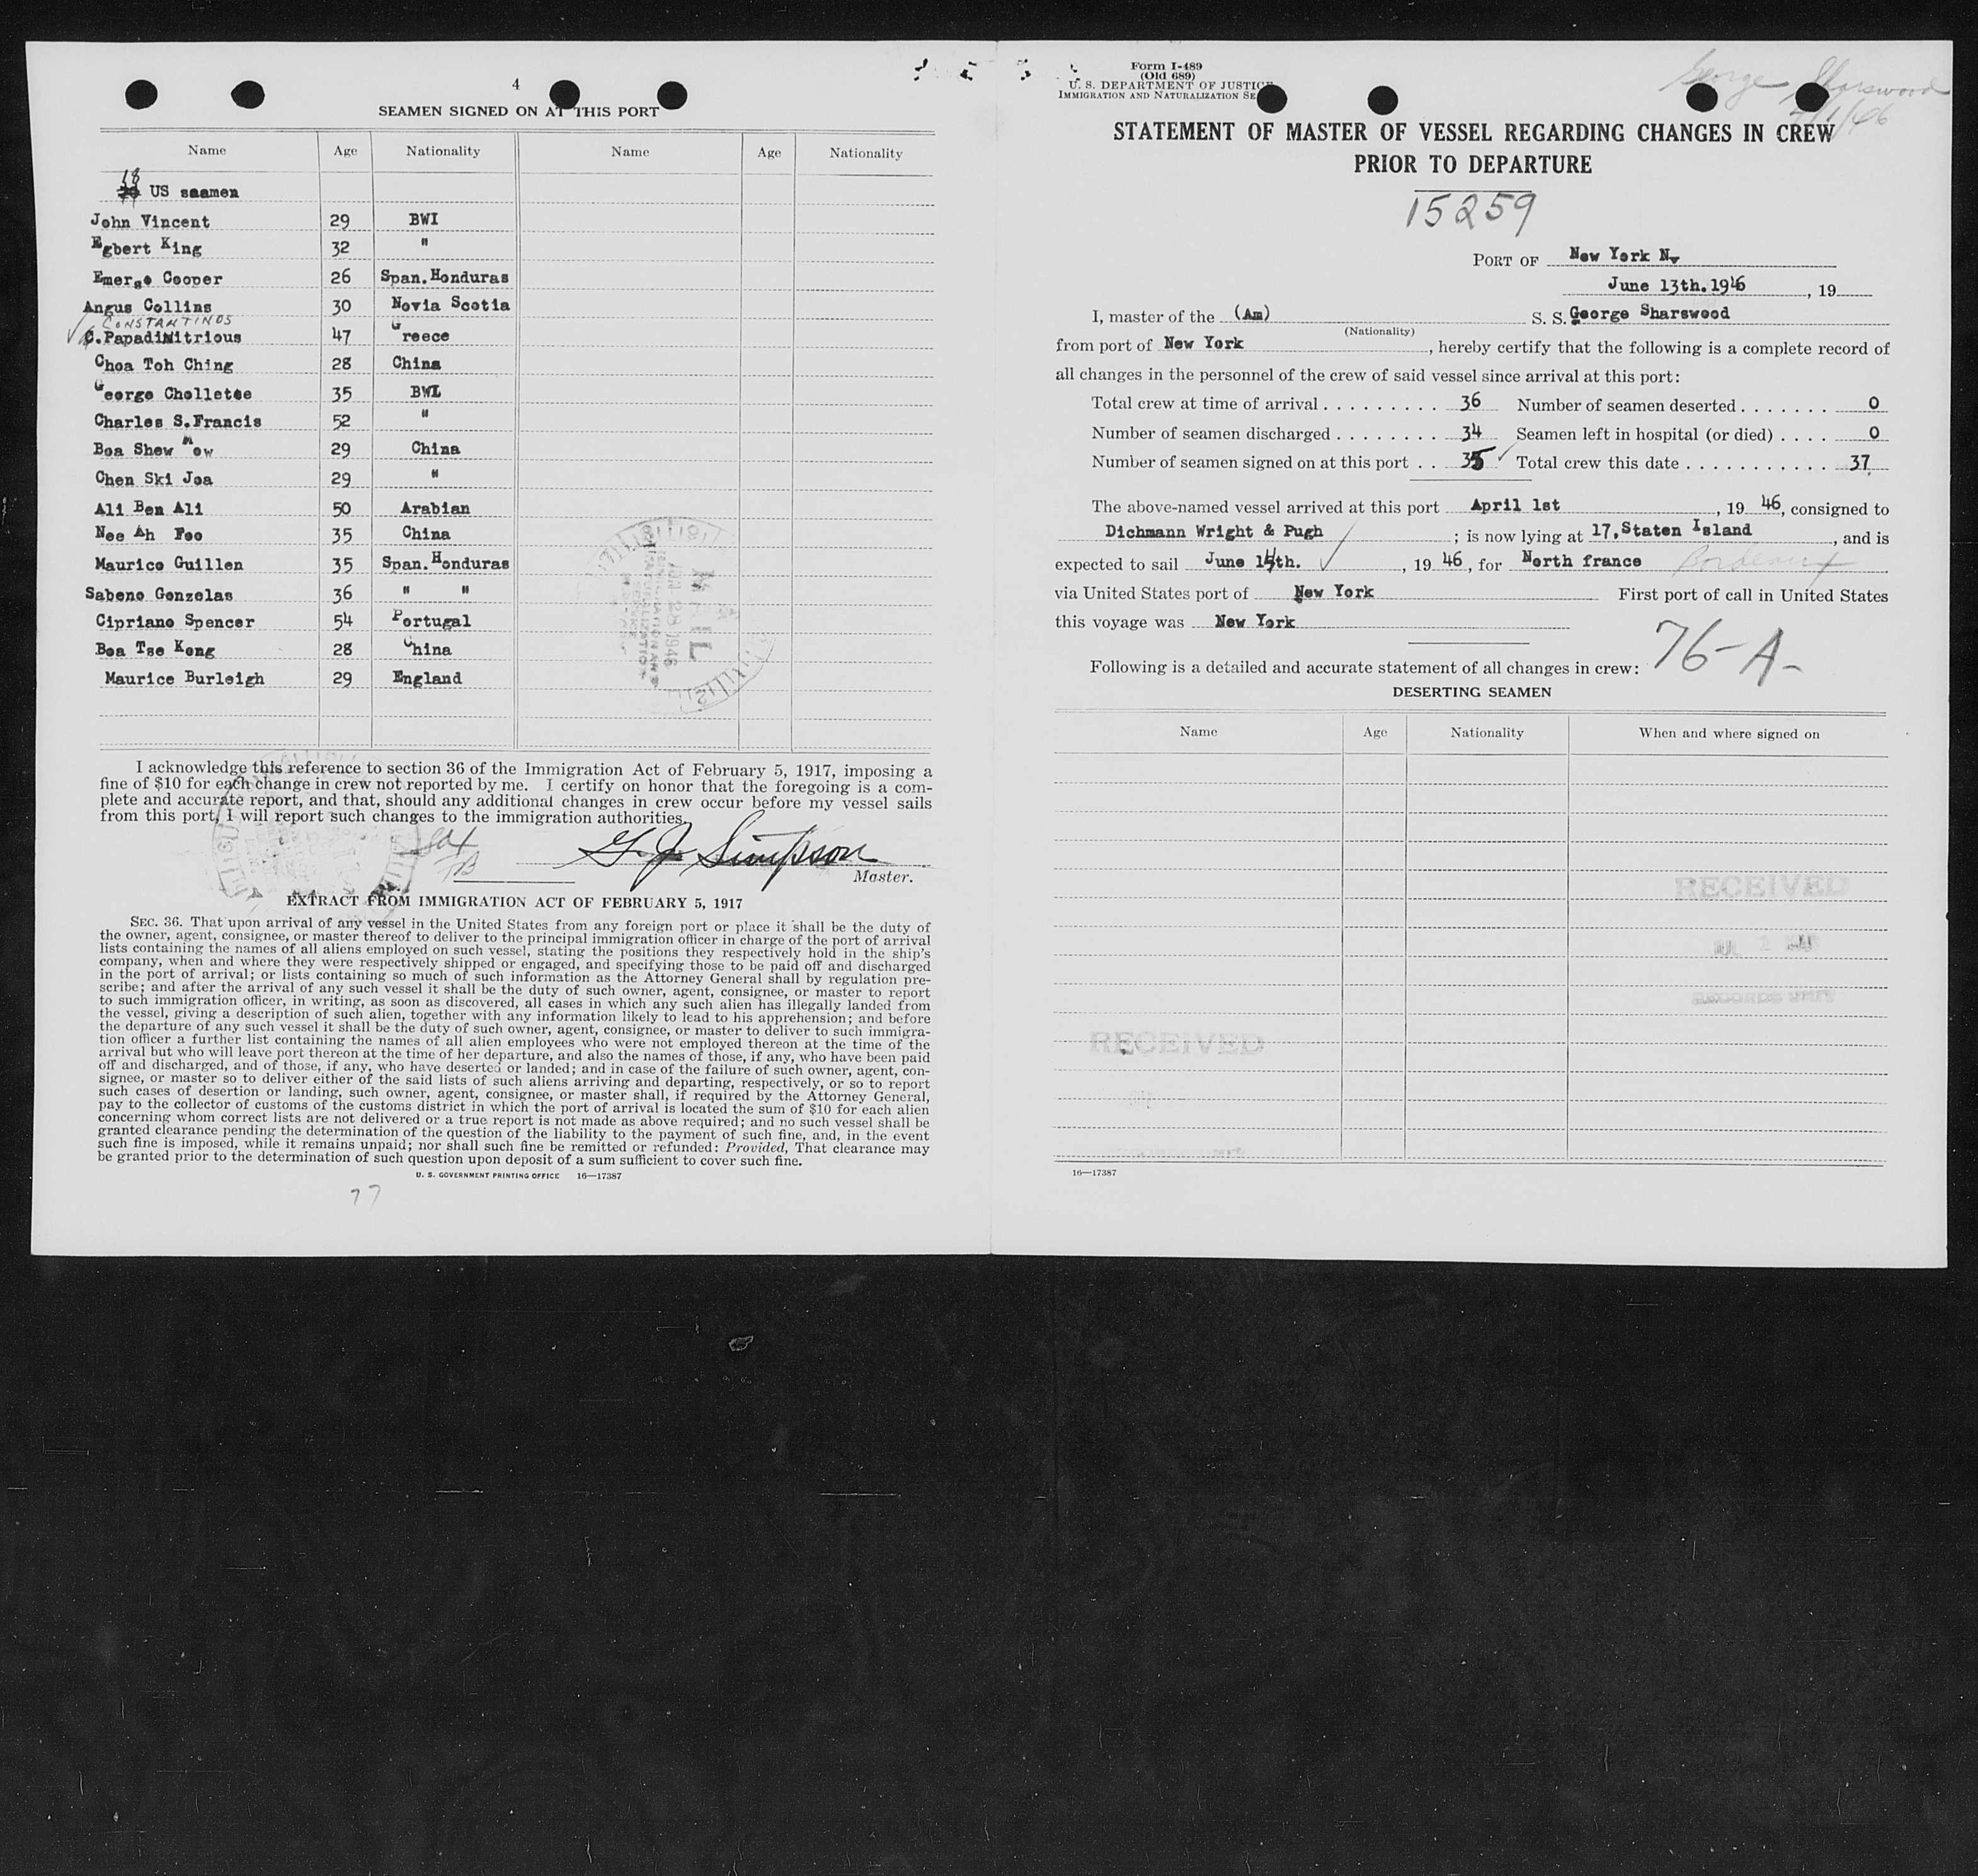 4
SEAMEN SIGNED ON AT THIS PORT
Name Age Nationality Name Age Nationality
18 US seamen
John Vincent 29 BWI
Egbert King 32 "
Emerso Cooper 26 Span.Honduras
Angus Collins 30 Novia Scotia
CONSTANTINOS
C.PapadiMitrious 47 Greece
Choa Toh Ching 28 China
George Cholletee 35 BWI
Charles S.Francis 52 "
Boa Shew Mow 29 China
Chen Ski Joa 29 "
Ali Ben Ali 50 Arabian
Nee Ah Foo 35 China
Maurice Guillen 35 Span.Honduras
Sabeno Gonzolas 36 " "
Cipriano Spencer 54 Portugal
Boa Tse Kong 28 China
Maurice Burleigh 29 England
I acknowledge this reference to section 36 of the Immigration Act of February 5, 1917, imposing a
fine of $10 for each change in crew not reported by me. I certify on honor that the foregoing is a com-
plete and accurate report, and that, should any additional changes in crew occur before my vessel sails
from this port, I will report such changes to the immigration authorities.
G. J. Simpson
Master.
EXTRACT FROM IMMIGRATION ACT OF FEBRUARY 5, 1917
SEC. 36. That upon arrival of any vessel in the United States from any foreign port or place it shall be the duty of
the owner, agent, consignee, or master thereof to deliver to the principal immigration officer in charge of the port of arrival
lists containing the names of all aliens employed on such vessel, stating the positions they respectively hold in the ship's
company, when and where they were respectively shipped or engaged, and specifying those to be paid off and discharged
in the port of arrival; or lists containing so much of such information as the Attorney General shall by regulation pre-
scribe; and after the arrival of any such vessel it shall be the duty of such owner, agent, consignee, or master to report
to such immigration officer, in writing, as soon as discovered, all cases in which any such alien has illegally landed from
the vessel, giving a description of such alien, together with any information likely to lead to his apprehension; and before
the departure of any such vessel it shall be the duty of such owner, agent, consignee, or master to deliver to such immigra-
tion officer a further list containing the names of all alien employees who were not employed thereon at the time of the
arrival but who will leave port thereon at the time of her departure, and also the names of those, if any, who have been paid
off and discharged, and of those, if any, who have deserted or landed; and in case of the failure of such owner, agent, con-
signee, or master so to deliver either of the said lists of such aliens arriving and departing, respectively, or so to report
such cases of desertion or landing, such owner, agent, consignee, or master shall, if required by the Attorney General,
pay to the collector of customs of the customs district in which the port of arrival is located the sum of $10 for each alien
concerning whom correct lists are not delivered or a true report is not made as above required; and no such vessel shall be
granted clearance pending the determination of the question of the liability to the payment of such fine, and, in the event
such fine is imposed, while it remains unpaid; nor shall such fine be remitted or refunded: Provided, That clearance may
be granted prior to the determination of such question upon deposit of a sum sufficient to cover such fine.
U. S. GOVERNMENT PRINTING OFFICE 16—17387
77
Form I-489
(Old 689)
U. S. DEPARTMENT OF JUSTICE
IMMIGRATION AND NATURALIZATION SE
George Sharswood
STATEMENT OF MASTER OF VESSEL REGARDING CHANGES IN CREW
PRIOR TO DEPARTURE
15259
PORT OF New York Ny
June 13th.1946, 19
I, master of the (Am) S. S. George Sharswood
(Nationality)
from port of New York, hereby certify that the following is a complete record of
all changes in the personnel of the crew of said vessel since arrival at this port:
Total crew at time of arrival . . . . . . . . . 36 Number of seamen deserted . . . . . . . 0
Number of seamen discharged . . . . . . . . 34 Seamen left in hospital (or died) . . . . 0
Number of seamen signed on at this port . . 35 Total crew this date . . . . . . . . . . . . 37
The above-named vessel arrived at this port April 1st, 19 46, consigned to
Dichmann Wright & Pugh ; is now lying at 17,Staten Island, and is
expected to sail June 14th., 19 46, for North france Bordeaux
via United States port of New York First port of call in United States
this voyage was New York
76-A-
Following is a detailed and accurate statement of all changes in crew:
DESERTING SEAMEN
Name Age Nationality When and where signed on
RECEIVED
RECORDS UNIT
RECEIVED
16—17387